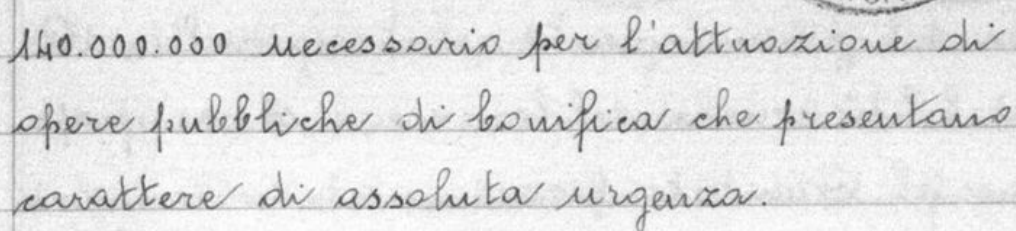 140.000.000 necessario per l'attuazione di
opere pubbliche di bonifica che presentano
carattere di assoluta urgenza.